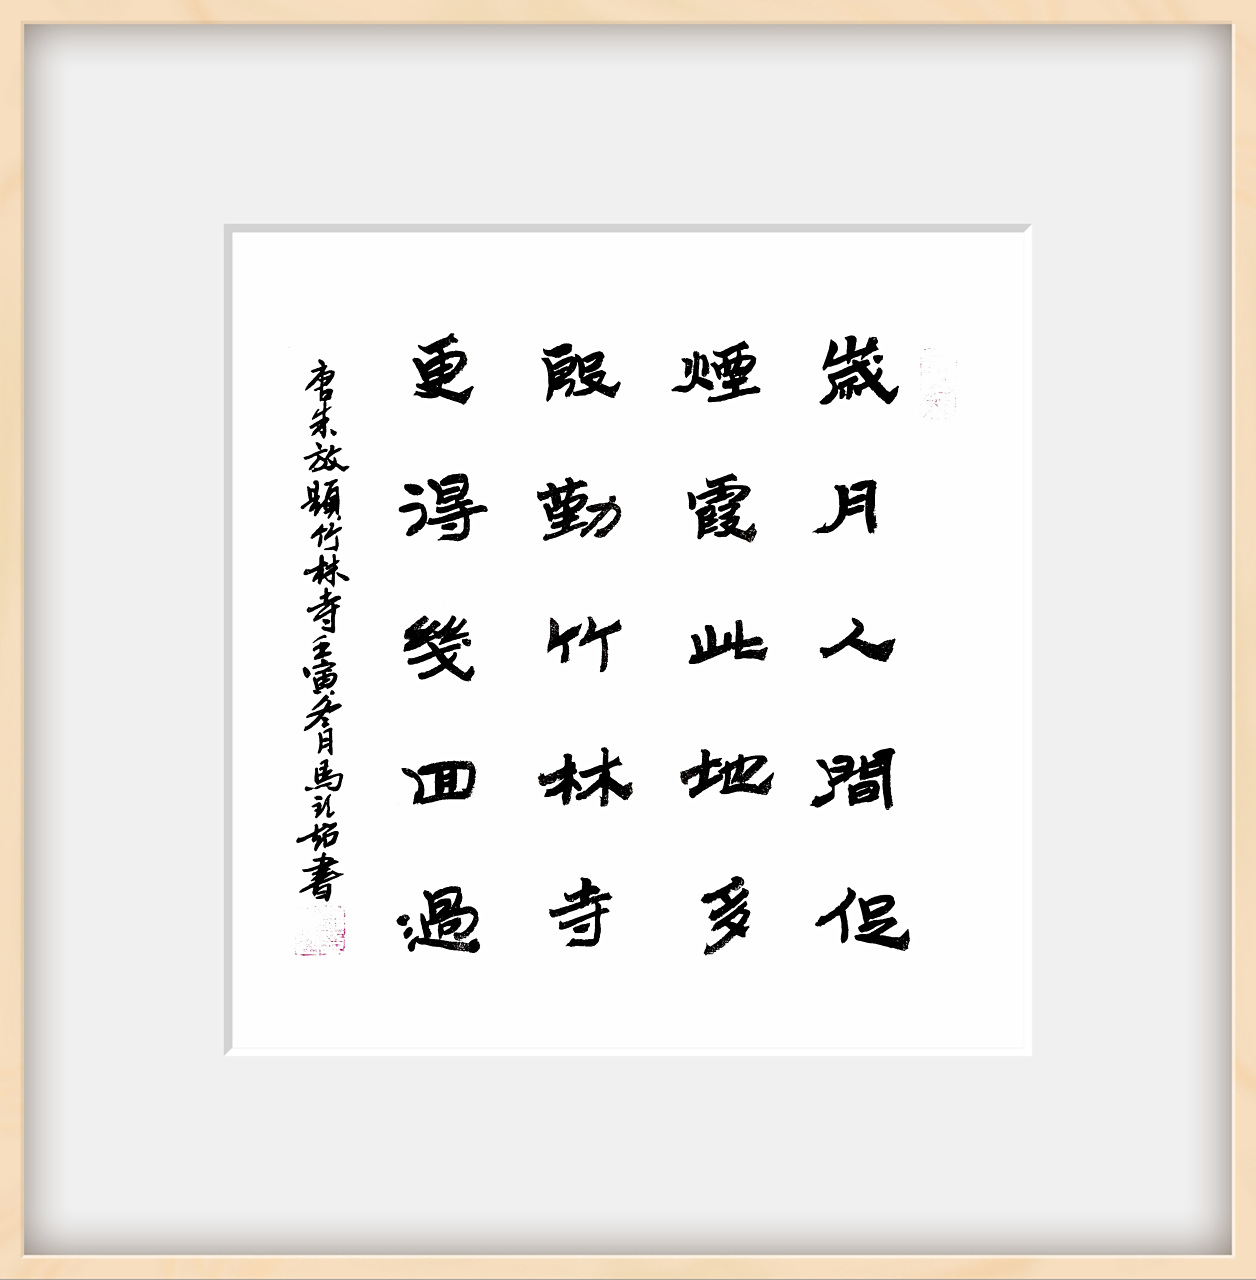 歲月人間促
煙霞此地多
殷勤竹林寺
更得幾回過
唐朱放題竹林寺壬寅冬月馬書